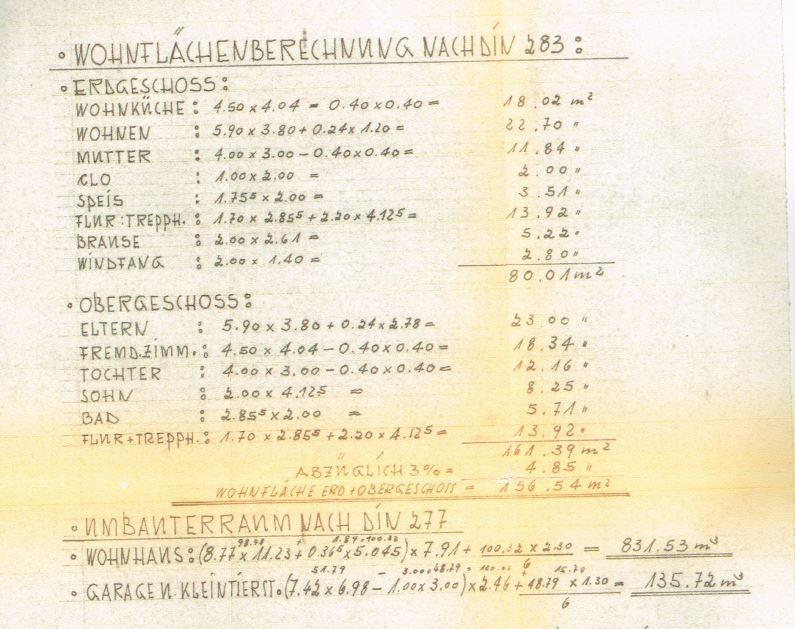 ° WOHNFLÄCHENBERECHNUNG NACH DIN 283 :
° ERDGESCHOSS :
WOHNKÜCHE : 4.50 x 4.04 - 0.40 x 0.40 = 18.02 m²
WOHNEN : 5.90 x 3.80 + 0.24 x 1.20 = 22.70 "
MUTTER : 4.00 x 3.00 - 0.40 x 0.40 = 11.84 "
CLO : 1.00 x 2.00 = 2.00 "
SPEIS : 1.75⁵ x 2.00 = 3.51 "
FLUR : TREPPH. : 1.70 x 2.85⁵ + 2.20 x 4.12⁵ = 13.92 "
BRAUSE : 2.00 x 2.61 = 5.22 "
WINDFANG : 2.00 x 1.40 = 2.80 "
80.01 m²
° OBERGESCHOSS :
ELTERN : 5.90 x 3.80 + 0.24 x 2.78 = 23.00 "
FREMD.ZIMM. : 4.50 x 4.04 - 0.40 x 0.40 = 18.34 "
TOCHTER : 4.00 x 3.00 - 0.40 x 0.40 = 12.16 "
SOHN : 2.00 x 4.125 = 8.25 "
BAD : 2.85⁵ x 2.00 = 5.71 "
FLUR + TREPPH. : 1.70 x 2.85⁵ + 2.20 x 4.12⁵ = 13.92 "
161.39 m²
ABZÜGLICH 3% = 4.85 "
WOHNFLÄCHE ERD + OBERGESCHOSS = 156.54 m²
° UMBAUTERRAUM NACH DIN 277
98.48 1.84 = 100.32
° WOHNHAUS : (8.77 x 11.23 + 0.36⁵ x 5.045) x 7.91 + 100.32 x 2.30 = 831.53 m³
6
51.79 - 3.00 = 48.79
° GARAGE U. KLEINTIERST. : (7.42 x 6.98 - 1.00 x 3.00) x 2.46 + 48.79 x 1.30 = 135.72 m³
6